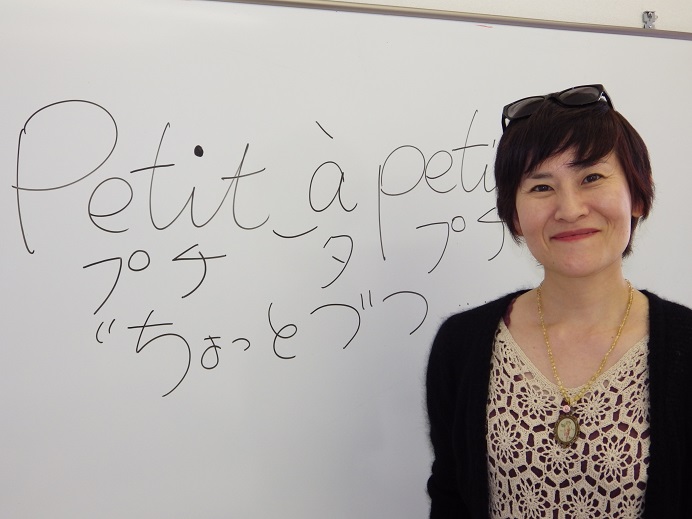 Petit‿à peti
プチ タ プチ
“ちょっとづつ …